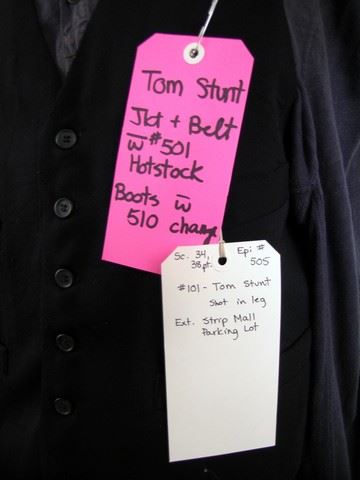 Tom Stunt
Jkt + Belt
w̄ #501
Hotstock
Boots w̄
510 change
Sc. 34, Epi #
38pt. 505
#101 - Tom Stunt
Shot in leg
Ext. Strip Mall
Parking Lot